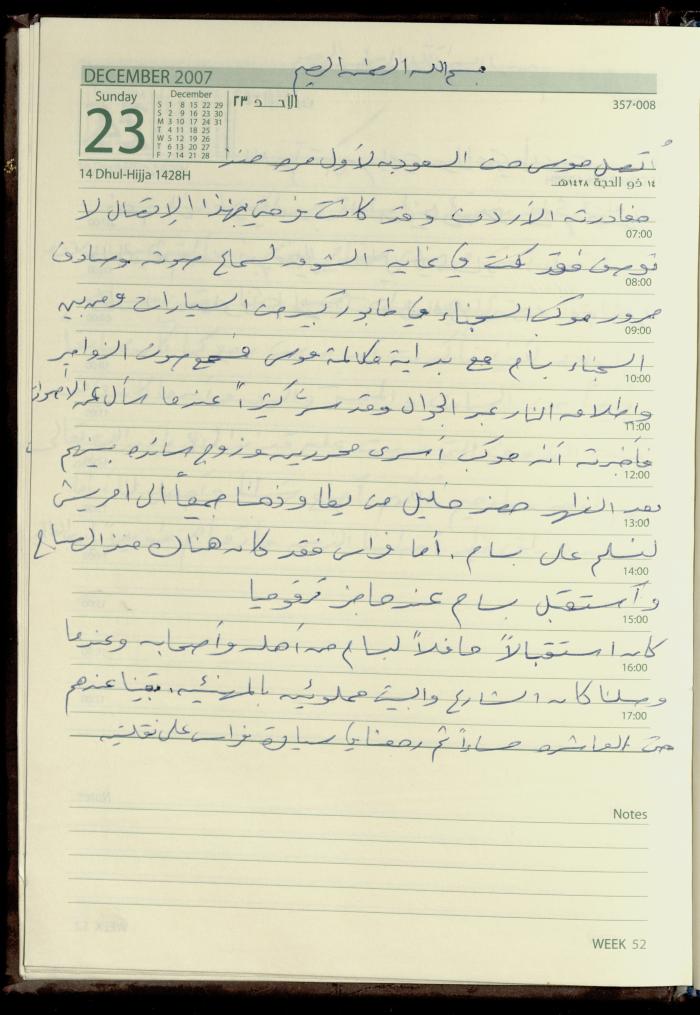 بسم الله الرحمن الرحيم
DECEMBER 2007
Sunday
23
December
S 1 8 15 22 29
S 2 9 16 23 30
M 3 10 17 24 31
T 4 11 18 25
W 5 12 19 26
T 6 13 20 27
F 7 14 21 28
الأحد ٢٣
357-008
14 Dhul-Hijja 1428H
١٤ ذو الحجة ١٤٢٨هـ
أتصل موسى من السعودية لأول مره منذ
مغادرته الأردن وقد كانت فرحتي بهذا الإتصال لا
07:00
توصف فقد كنت في غاية الشوق لسماع صوته وصادف
08:00
مرور موكب السجناء في طابور كبير من السيارات ومن بين
09:00
السجناء بسام مع بداية مكالمة موسى فسمع صوت الزوامير
10:00
واطلاق النار عبر الجوال وقد سر كثيراً عندما سأل عن الأصوات
11:00
فأخبرته أنه موكب أسرى محررين وزوج سائده بينهم
12:00
بعد الظهر حضر خليل من يطا وذهبنا جميعاً الى امريش
13:00
لنسلم على بسام. أما فراس فقد كان هناك منذ الصباح
14:00
وأستقبل بسام عند حاجز ترقوميا
15:00
كان استقبالاً حافلاً لبسام من أهله وأصحابه وعندما
16:00
وصلنا كان الشارع والبيت مملوئين بالمهنئين. بقينا عندهم
17:00
حتى العاشره مساءاً ثم رجعنا في سيارة فراس على نقلتين
Notes
WEEK 52